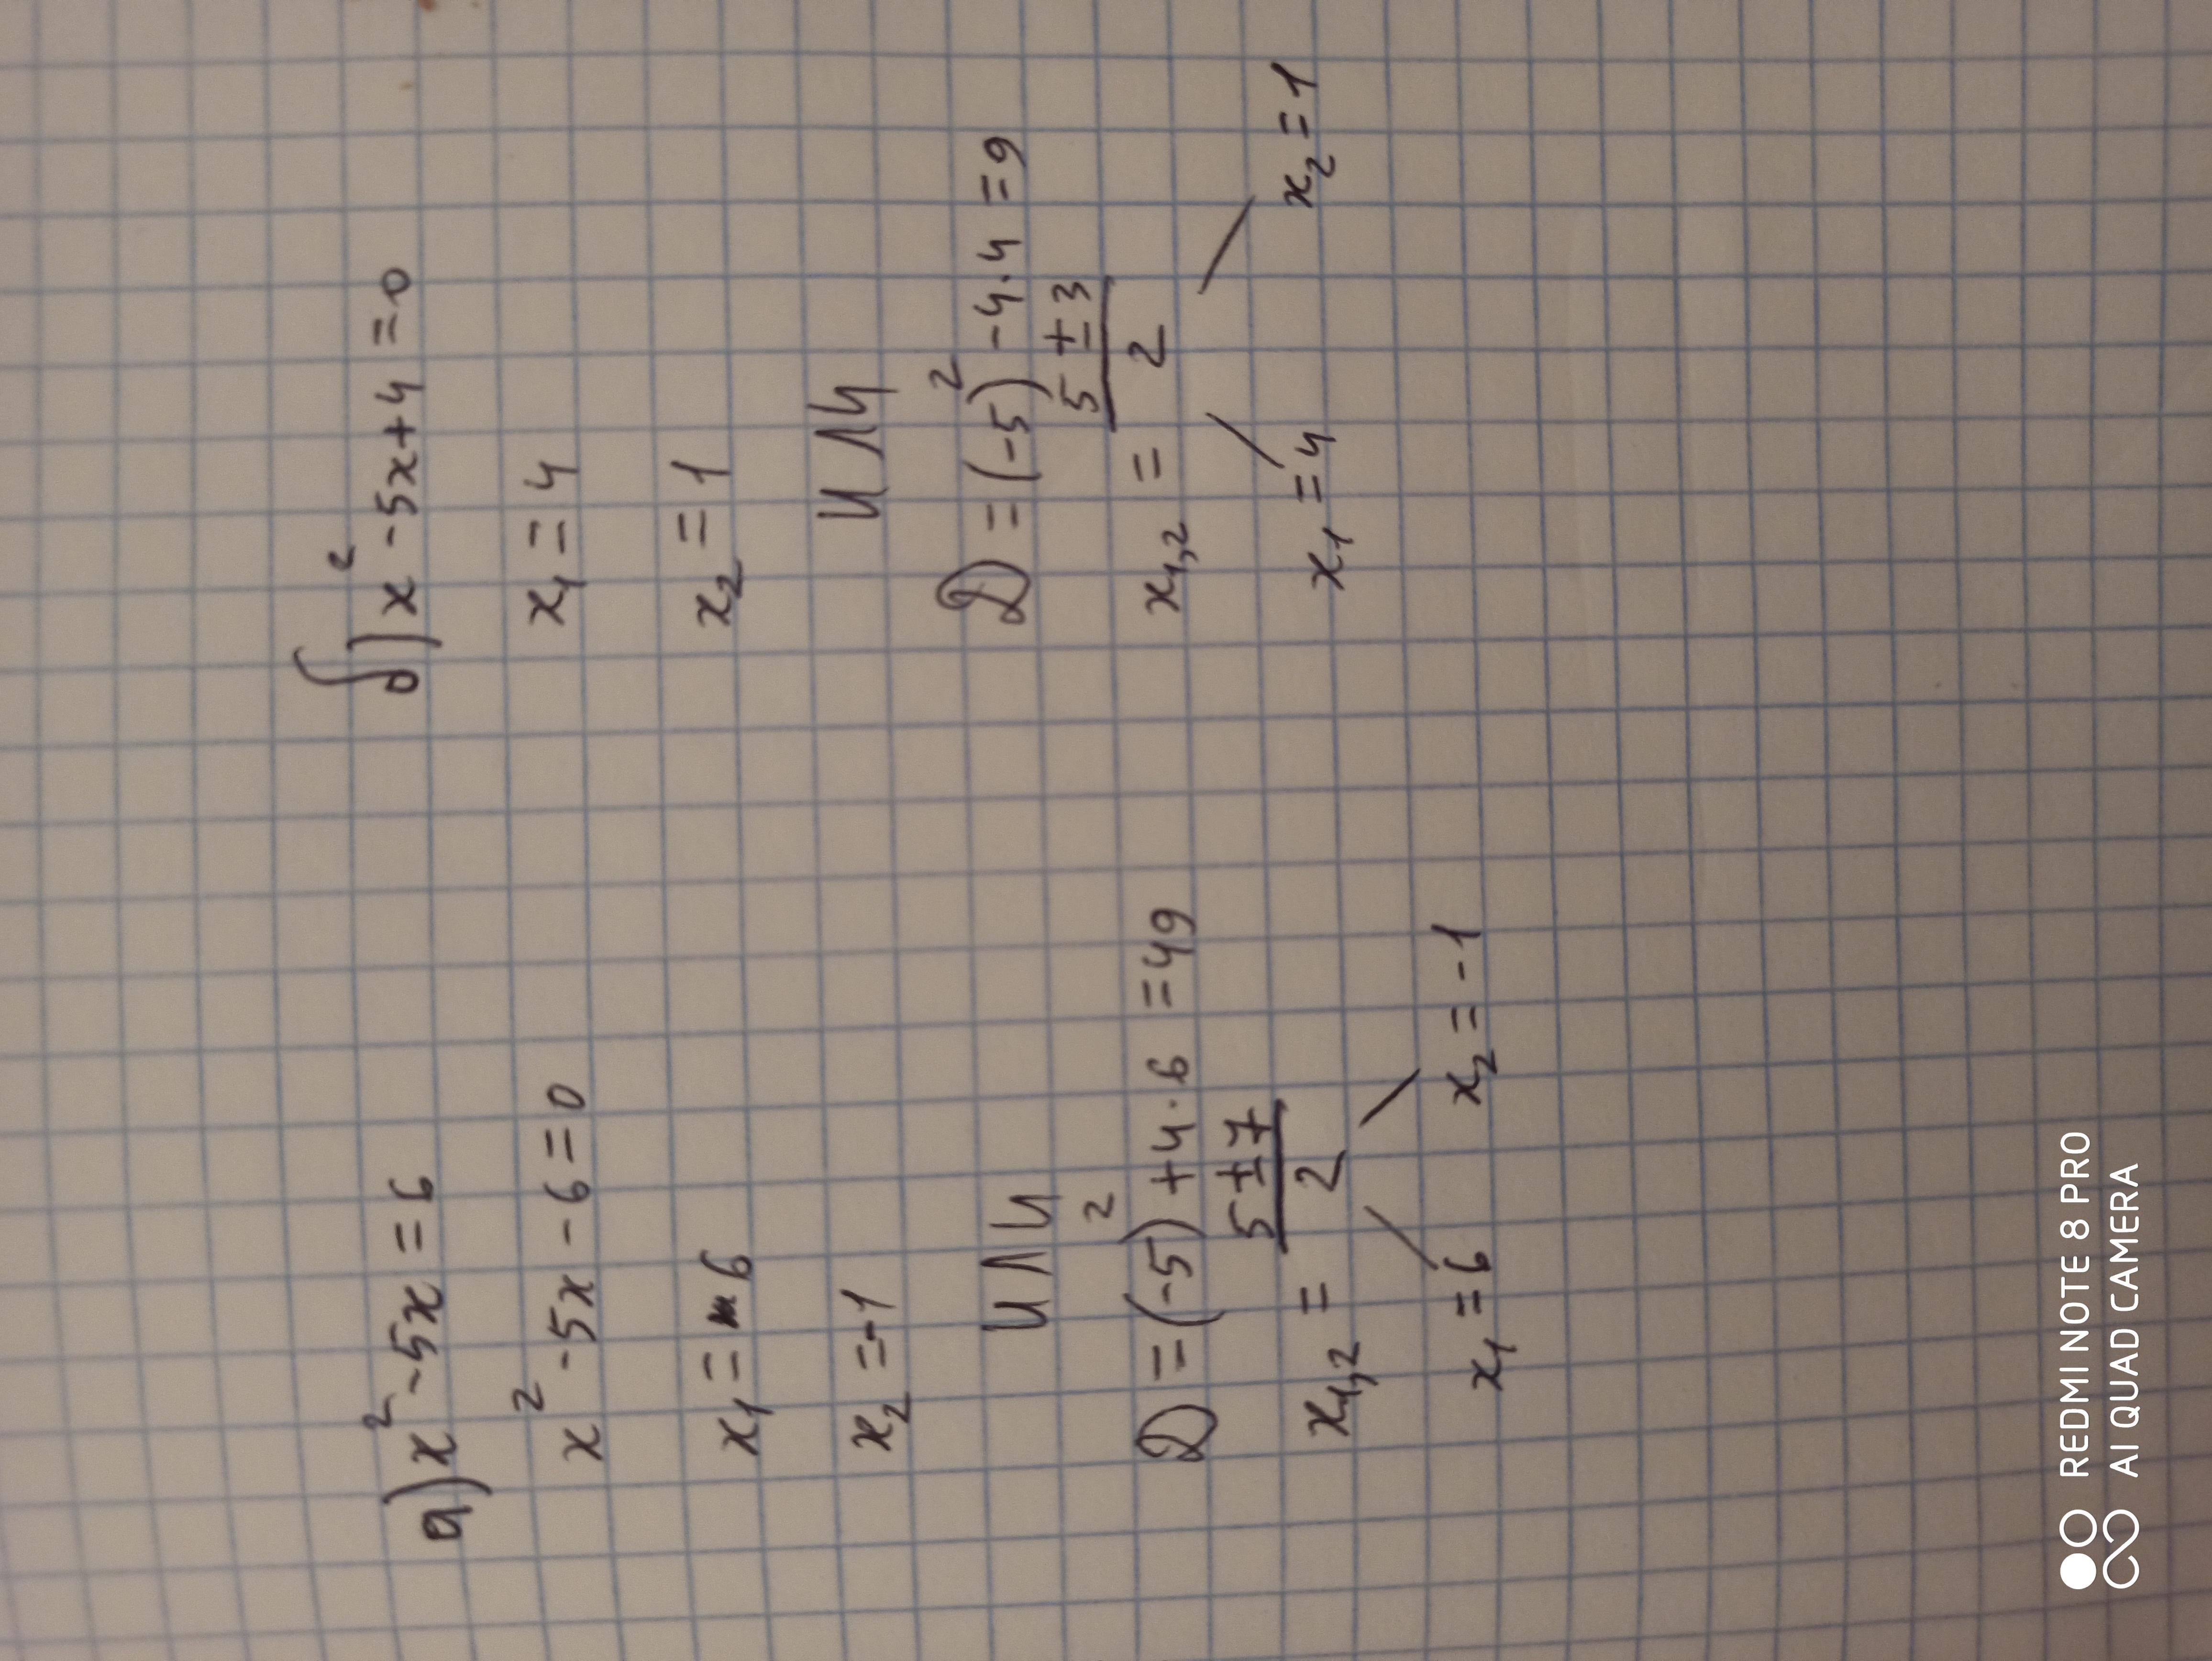 а) x² - 5x = 6
x² - 5x - 6 = 0
x₁ = 6
x₂ = -1
или
D = (-5)² + 4 · 6 = 49
x₁,₂ = (5 ± 7)/2
x₁ = 6 x₂ = -1
б) x² - 5x + 4 = 0
x₁ = 4
x₂ = 1
или
D = (-5)² - 4 · 4 = 9
x₁,₂ = (5 ± 3)/2
x₁ = 4 x₂ = 1
REDMI NOTE 8 PRO
AI QUAD CAMERA